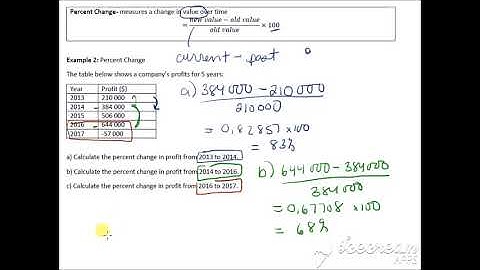 Percent Change- measures a change in value over time
= new value − old value / old value × 100
current - past
Example 2: Percent Change
The table below shows a company's profits for 5 years:
Year Profit ($)
2013 210 000
2014 384 000
2015 506 000
2016 644 000
2017 -57 000
a) Calculate the percent change in profit from 2013 to 2014.
b) Calculate the percent change in profit from 2014 to 2016.
c) Calculate the percent change in profit from 2016 to 2017.
a) 384 000 - 210 000
210 000
= 0,82857 x 100
= 83%
b) 644 000 - 384 000
384 000
= 0,67708 x 100
= 68%